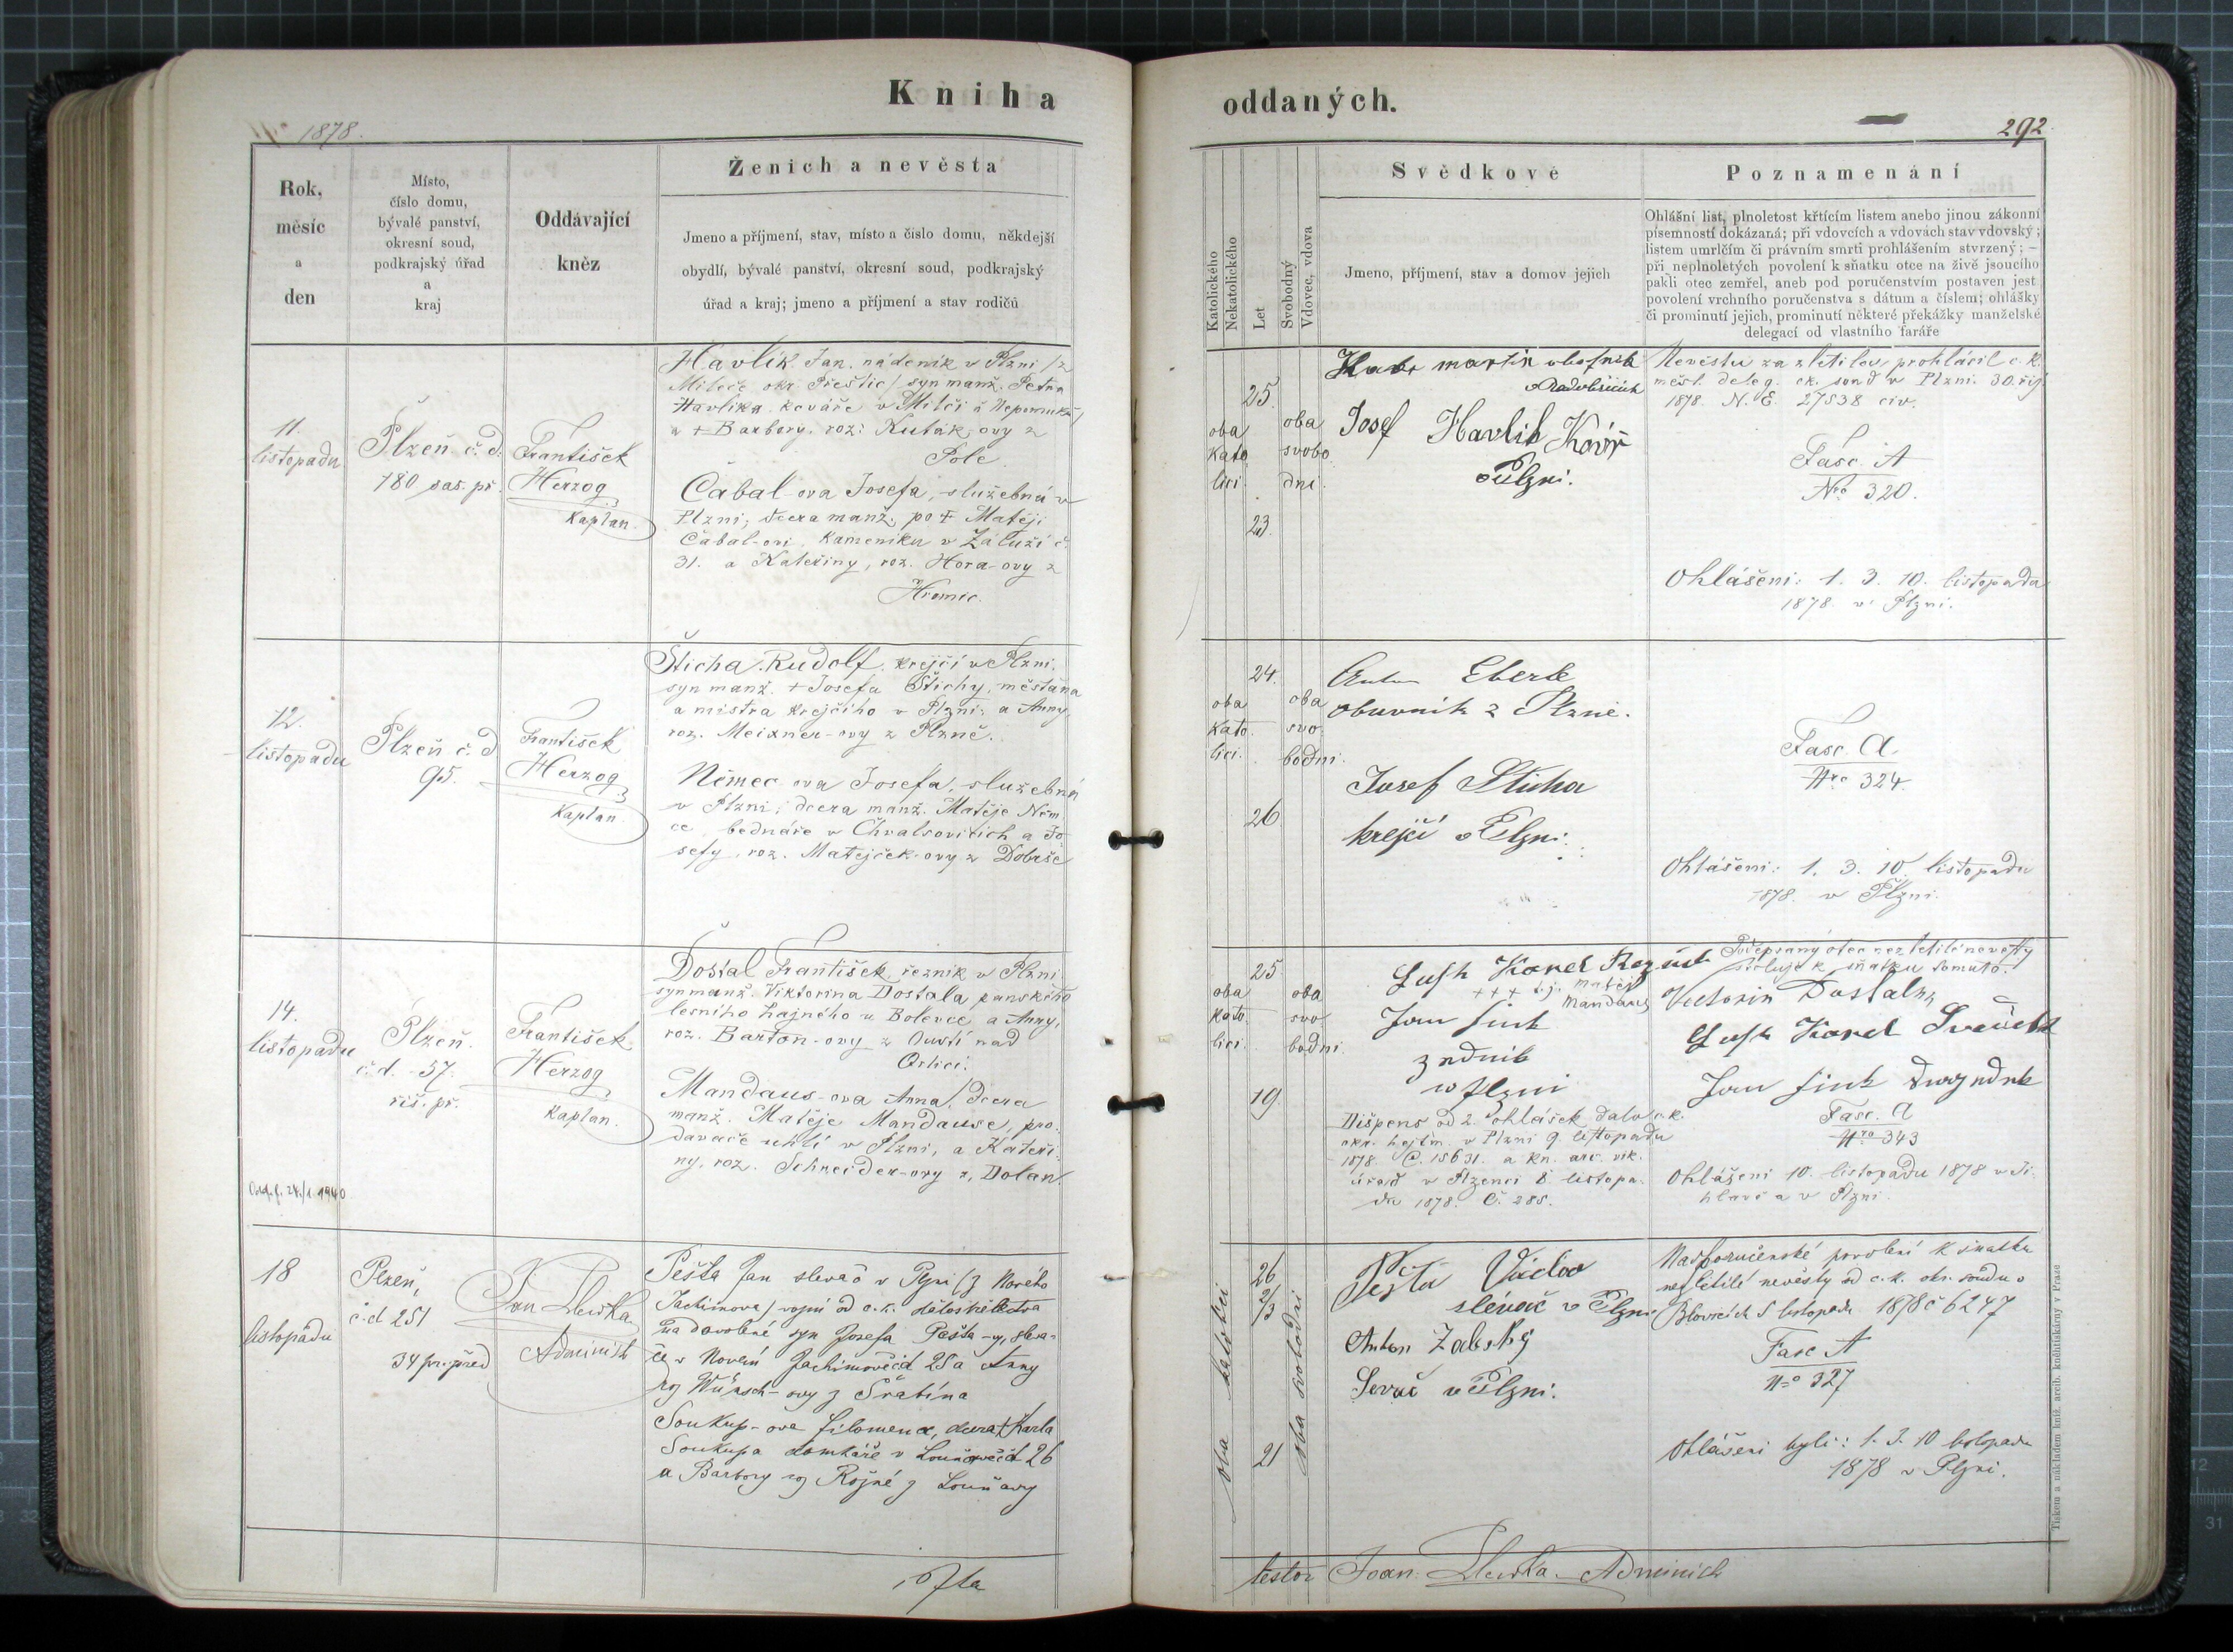 Kniha oddaných.
1878.
292
Rok,
měsíc
a
den
Místo,
číslo domu,
bývalé panství,
okresní soud,
podkrajský úřad
a
kraj
Oddávající
kněz
Ženich a nevěsta
Jmeno a příjmení, stav, místo a číslo domu, někdejší
obydlí, bývalé panství, okresní soud, podkrajský
úřad a kraj; jmeno a příjmení a stav rodičů
Katolického
Nekatolického
Let
Svobodný
Vdovec, vdova
Svědkové
Jmeno, příjmení, stav a domov jejich
Poznamenání
Ohlášní list, plnoletost křtícím listem anebo jinou zákonní
písemností dokázaná; při vdovcích a vdovách stav vdovský;
listem umrlčím či právním smrti prohlášením stvrzený; –
při neplnoletých povolení k sňatku otce na živě jsoucího
pakli otec zemřel, aneb pod poručenstvím postaven jest
povolení vrchního poručenstva s dátum a číslem; ohlášky
či prominutí jejich, prominutí některé překážky manželské
delegací od vlastního faráře
11.
listopadu
Plzeň č. d.
180 sas. př.
František
Herzog
Kaplan.
Havlík Jan, nádeník v Plzni /z
Milče okr. Přeštic/ syn manž. Petra
Havlíka, kováře v Milči u Nepomuka/
a + Barbory, roz. Kuták-ovy z
Pole
Čabal-ova Josefa, služebná v
Plzni, dcera manž. po + Matěji
Čabal-ovi, kameníku v Záluží č.
31. a Kateřiny, roz. Hora-ovy z
Hromic.
oba
kato
líci.
25.
23.
oba
svobo
dní.
martin
v Radobčicích
Josef Havlik Kovář
v Plzni.
Nevěstu za zletilou prohlásil c. k.
měst. deleg. ok. soud v Plzni. 30. říj.
1878. N. E. 27538 civ.
Fasc. A
Nro 320.
Ohlášeni: 1. 3. 10. listopadu
1878. v Plzni.
12.
listopadu
Plzeň č. d
95.
František
Herzog
Kaplan.
Šticha Rudolf, krejčí v Plzni,
syn manž. + Josefa Štichy, měštana
a mistra krejčího v Plzni, a Anny,
roz. Meixner-ovy z Plzně.
Němec-ova Josefa, služebná
v Plzni, dcera manž. Matěje Něm
ce, bednáře v Chvalšovicích a Jo
sefy, roz. Matějček-ovy z Dobrše
oba
kato
líci.
24.
26
oba
svo
bodni.
Anton Eberle
obuvník z Plzně.
Josef Sticha
krejčí v Plzni.
Fasc. A
Nro 324.
Ohlášeni: 1. 3. 10. listopadu
1878. v Plzni.
14.
listopadu
Plzeň.
č. d. 57.
říš. př.
František
Herzog
Kaplan.
Dostal František, řezník v Plzni
syn manž. Viktorina Dostala, panského
lesního hajného u Bolevce, a Anny,
roz. Barton-ovy z Oustí nad
Orlicí.
Mandaus-ova Anna, dcera
manž. Matěje Mandause, pro-
davače uhlí v Plzni, a Kateři-
ny, roz. Schneider-ovy z Dolan
24./1. 1940
oba
kato
líci.
25
19.
oba
svo
bodni.
Karel
+++ t. j. Matěj
Mandaus
Jan
v Plzni
Dišpens od 2. ohlášek dalo c. k.
okr. hejtm. v Plzni 9. listopadu
1878. Č. 15631. a kn. arc. vik.
úřad v Plzenci 8. listopa-
du 1878. Č. 285.
Podepsaný otec nezletilé nevěsty
svoluje k sňatku tomuto.
Victorin Dostal
Karel
Jan
Fasc. A
Nro 343
Ohlášeni 10. listopadu 1878 v Ji-
hlavě a v Plzni.
18
listopadu
Plzeň,
č. d 251
34 pr. před
Administ
Pešta Jan slevač v Plzni (z Nového
Jachimova) vojín od c. k. dělostřelectva
na dovolené syn Josefa Pešta-y, sleva-
če v Novém Jachimově čd 25 a Anny
roz Wünsch-ovy z
Soukup-ova Filomena, dcera + Karla
Soukupa domkáře v Louňové čd 26
a Barbory roz Rojné z Louňavy
oba katolíci
26
21
oba svobodní
Pešta Václav
slévač v Plzni
Anton
v Plzni.
Nadporučenské povolení k sňatku
nezletilé nevěsty od c. k. okr. soudu v
Blovicích 5 listopadu 1878 č 6247
Fasc A
No 327
Ohlášeni byli: 1. 3. 10 listopadu
1878 v Plzni.
Tiskem a nákladem kníž. arcib. kněhtiskárny v Praze